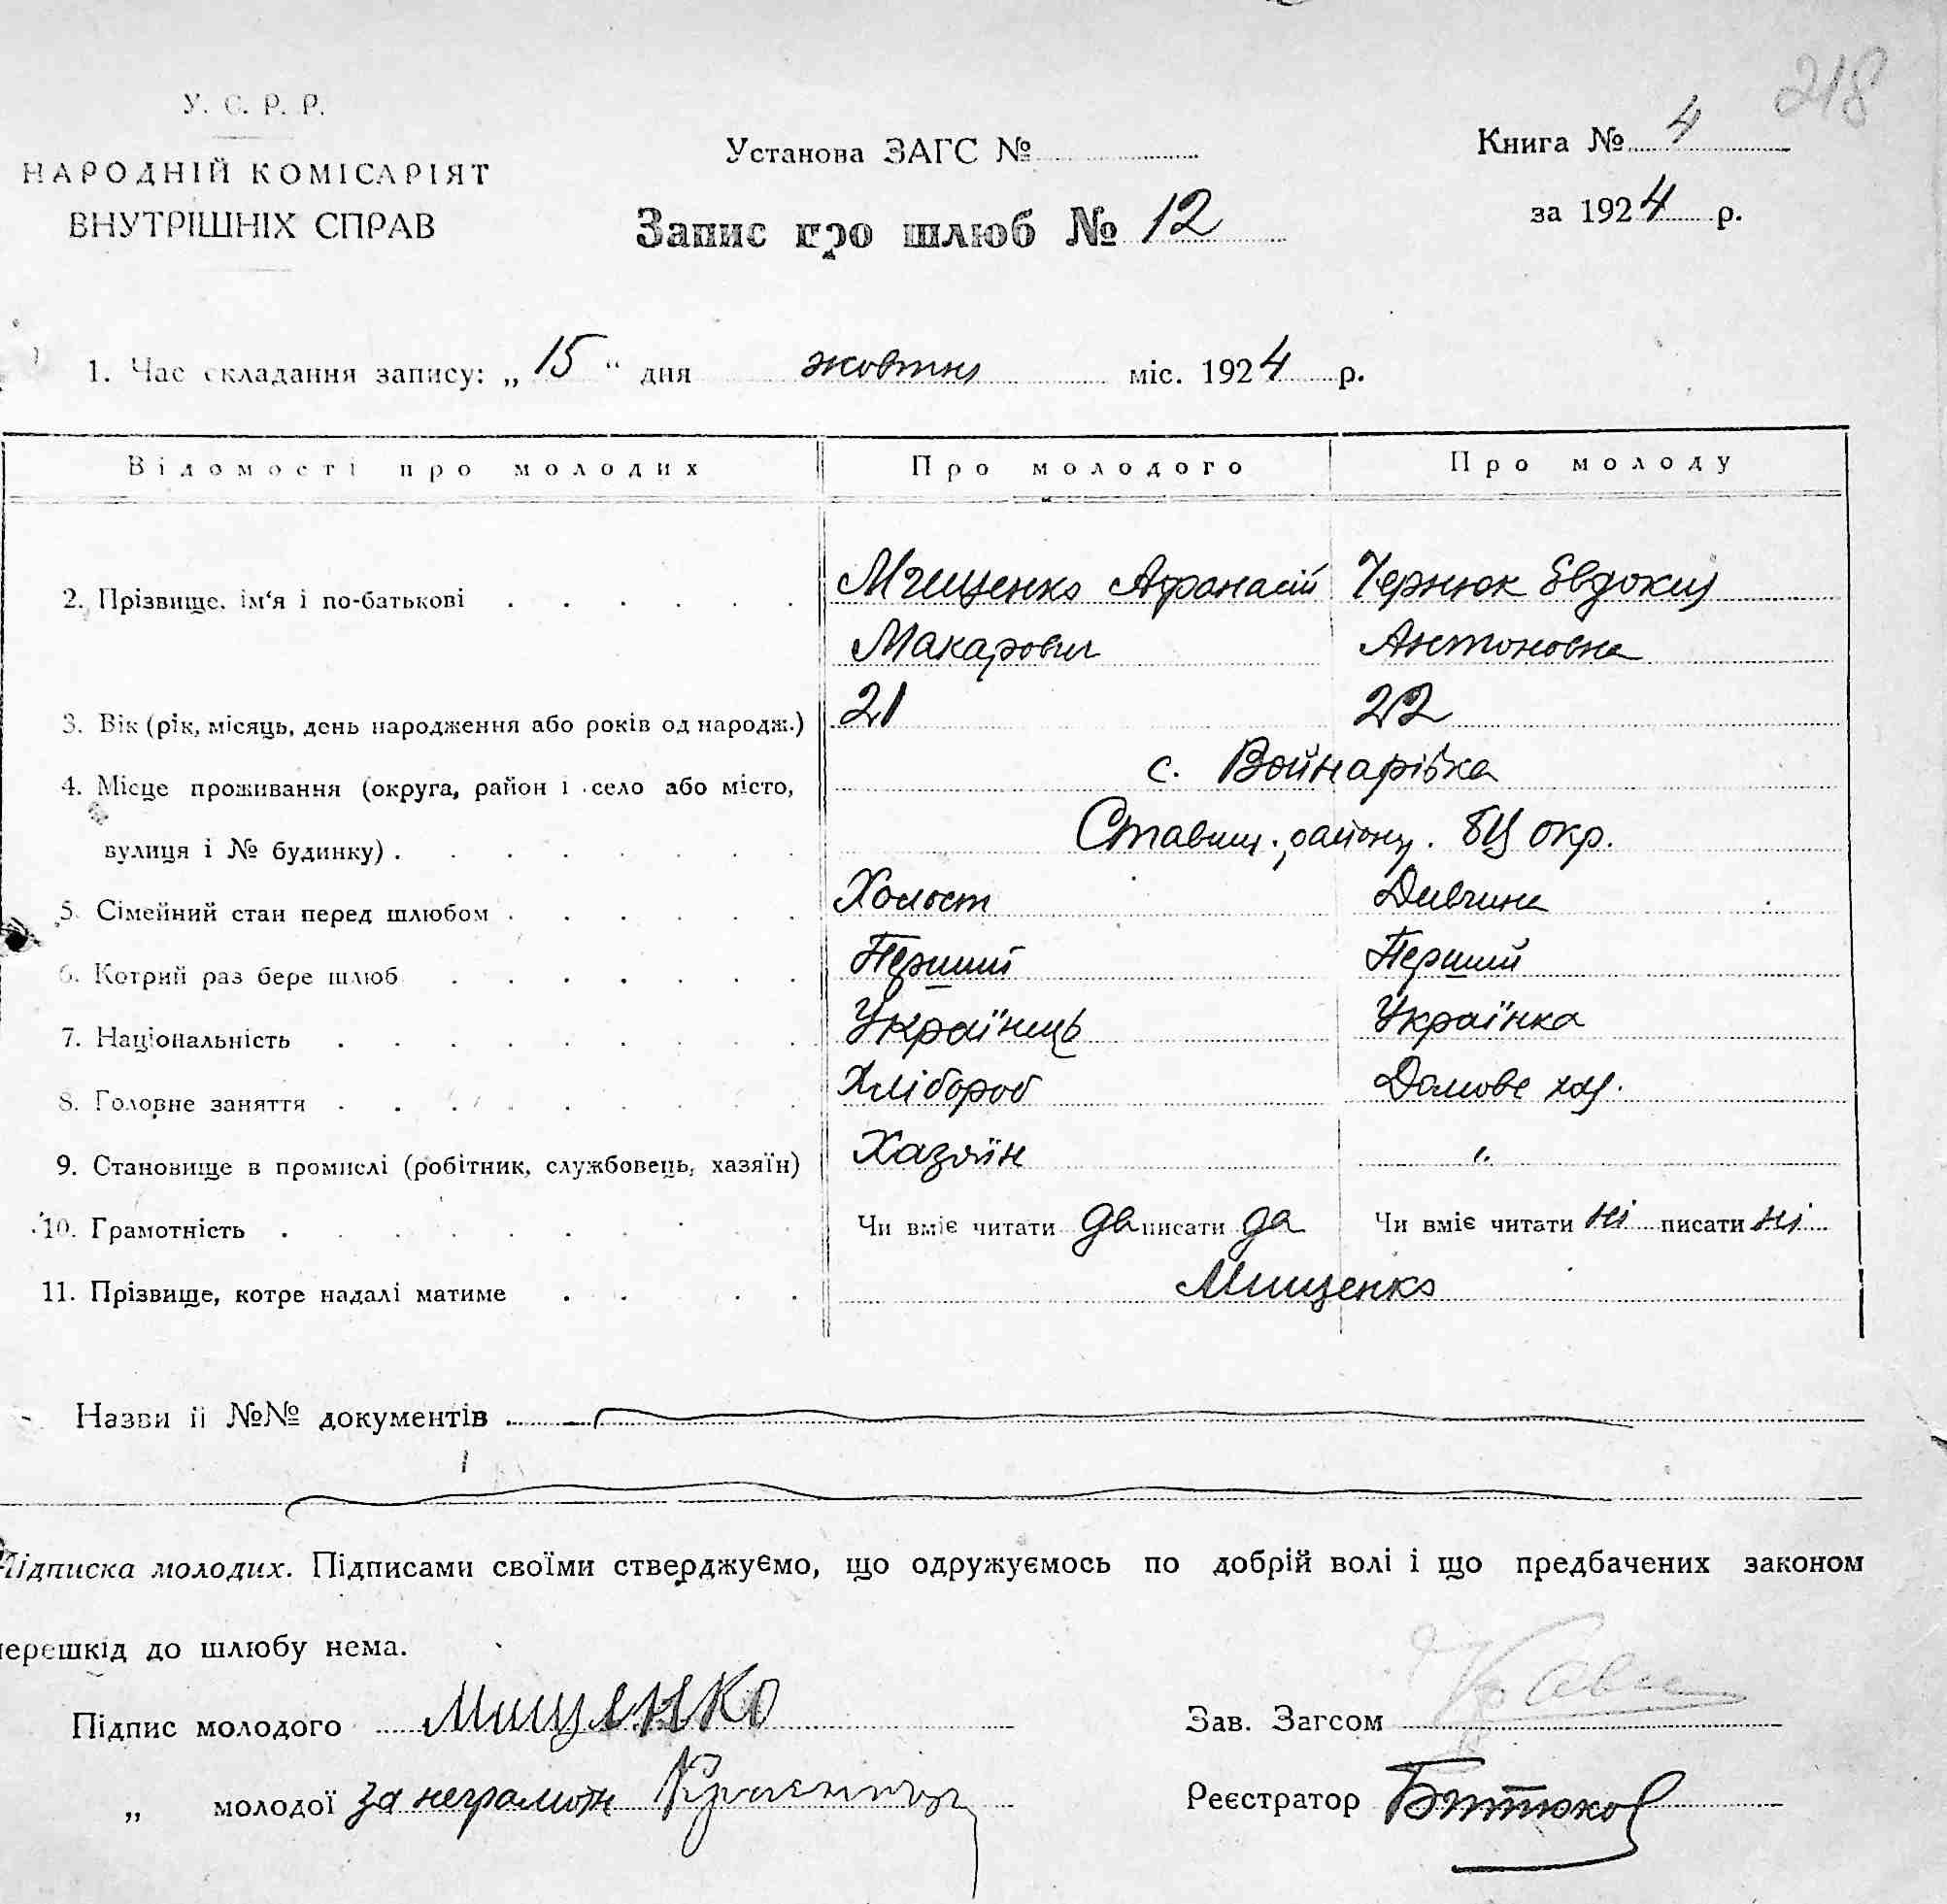 218
У. С. Р. Р.
НАРОДНІЙ КОМІСАРІЯТ
ВНУТРІШНІХ СПРАВ
Установа ЗАГС №
Книга № 4
за 1924 р.
Запис про шлюб № 12
1. Час складання запису: „ 15 “ дня жовтня міс. 1924 р.
Відомості про молодих Про молодого Про молоду
2. Прізвище, ім‘я і по-батькові Мищенко Афранасій Чернюк Євдокия
Макарович Антоновна
3. Вік (рік, місяць, день народження або років од народж.) 21 22
4. Місце проживання (округа, район і село або місто, с. Войнарівка
вулиця і № будинку) Ставищ. району. БЦ окр.
5. Сімейний стан перед шлюбом Холост Дивчина
6. Котрий раз бере шлюб Перший Перший
7. Національність Українець Українка
8. Головне заняття Хлібороб Домове хаз.
9. Становище в промислі (робітник, службовець, хазяїн) Хазяїн "
10. Грамотність Чи вміє читати да писати да Чи вміє читати ні писати ні
11. Прізвище, котре надалі матиме Мищенко
Назви ії №№ документів
Підписка молодих. Підписами своїми стверджуємо, що одружуємось по добрій волі і що предбачених законом
перешкід до шлюбу нема.
Підпис молодого Мищенко Зав. Загсом
„ молодої за неграмотн Реєстратор